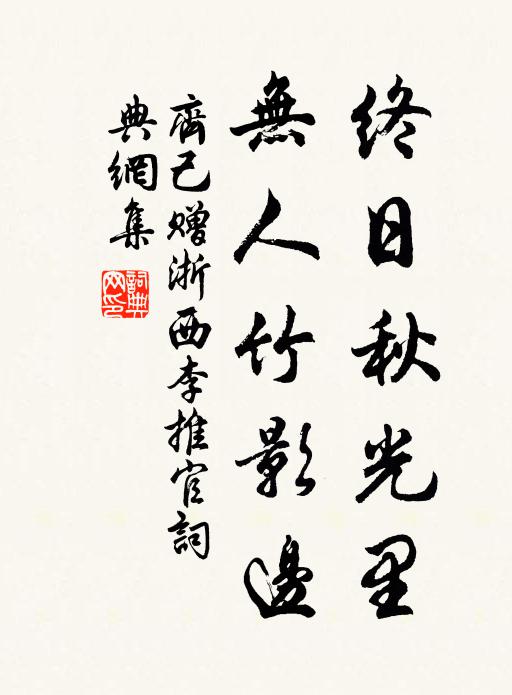 終日秋光里
無人竹影邊
齊己贈浙西李推官詞
典網集
詞典网印